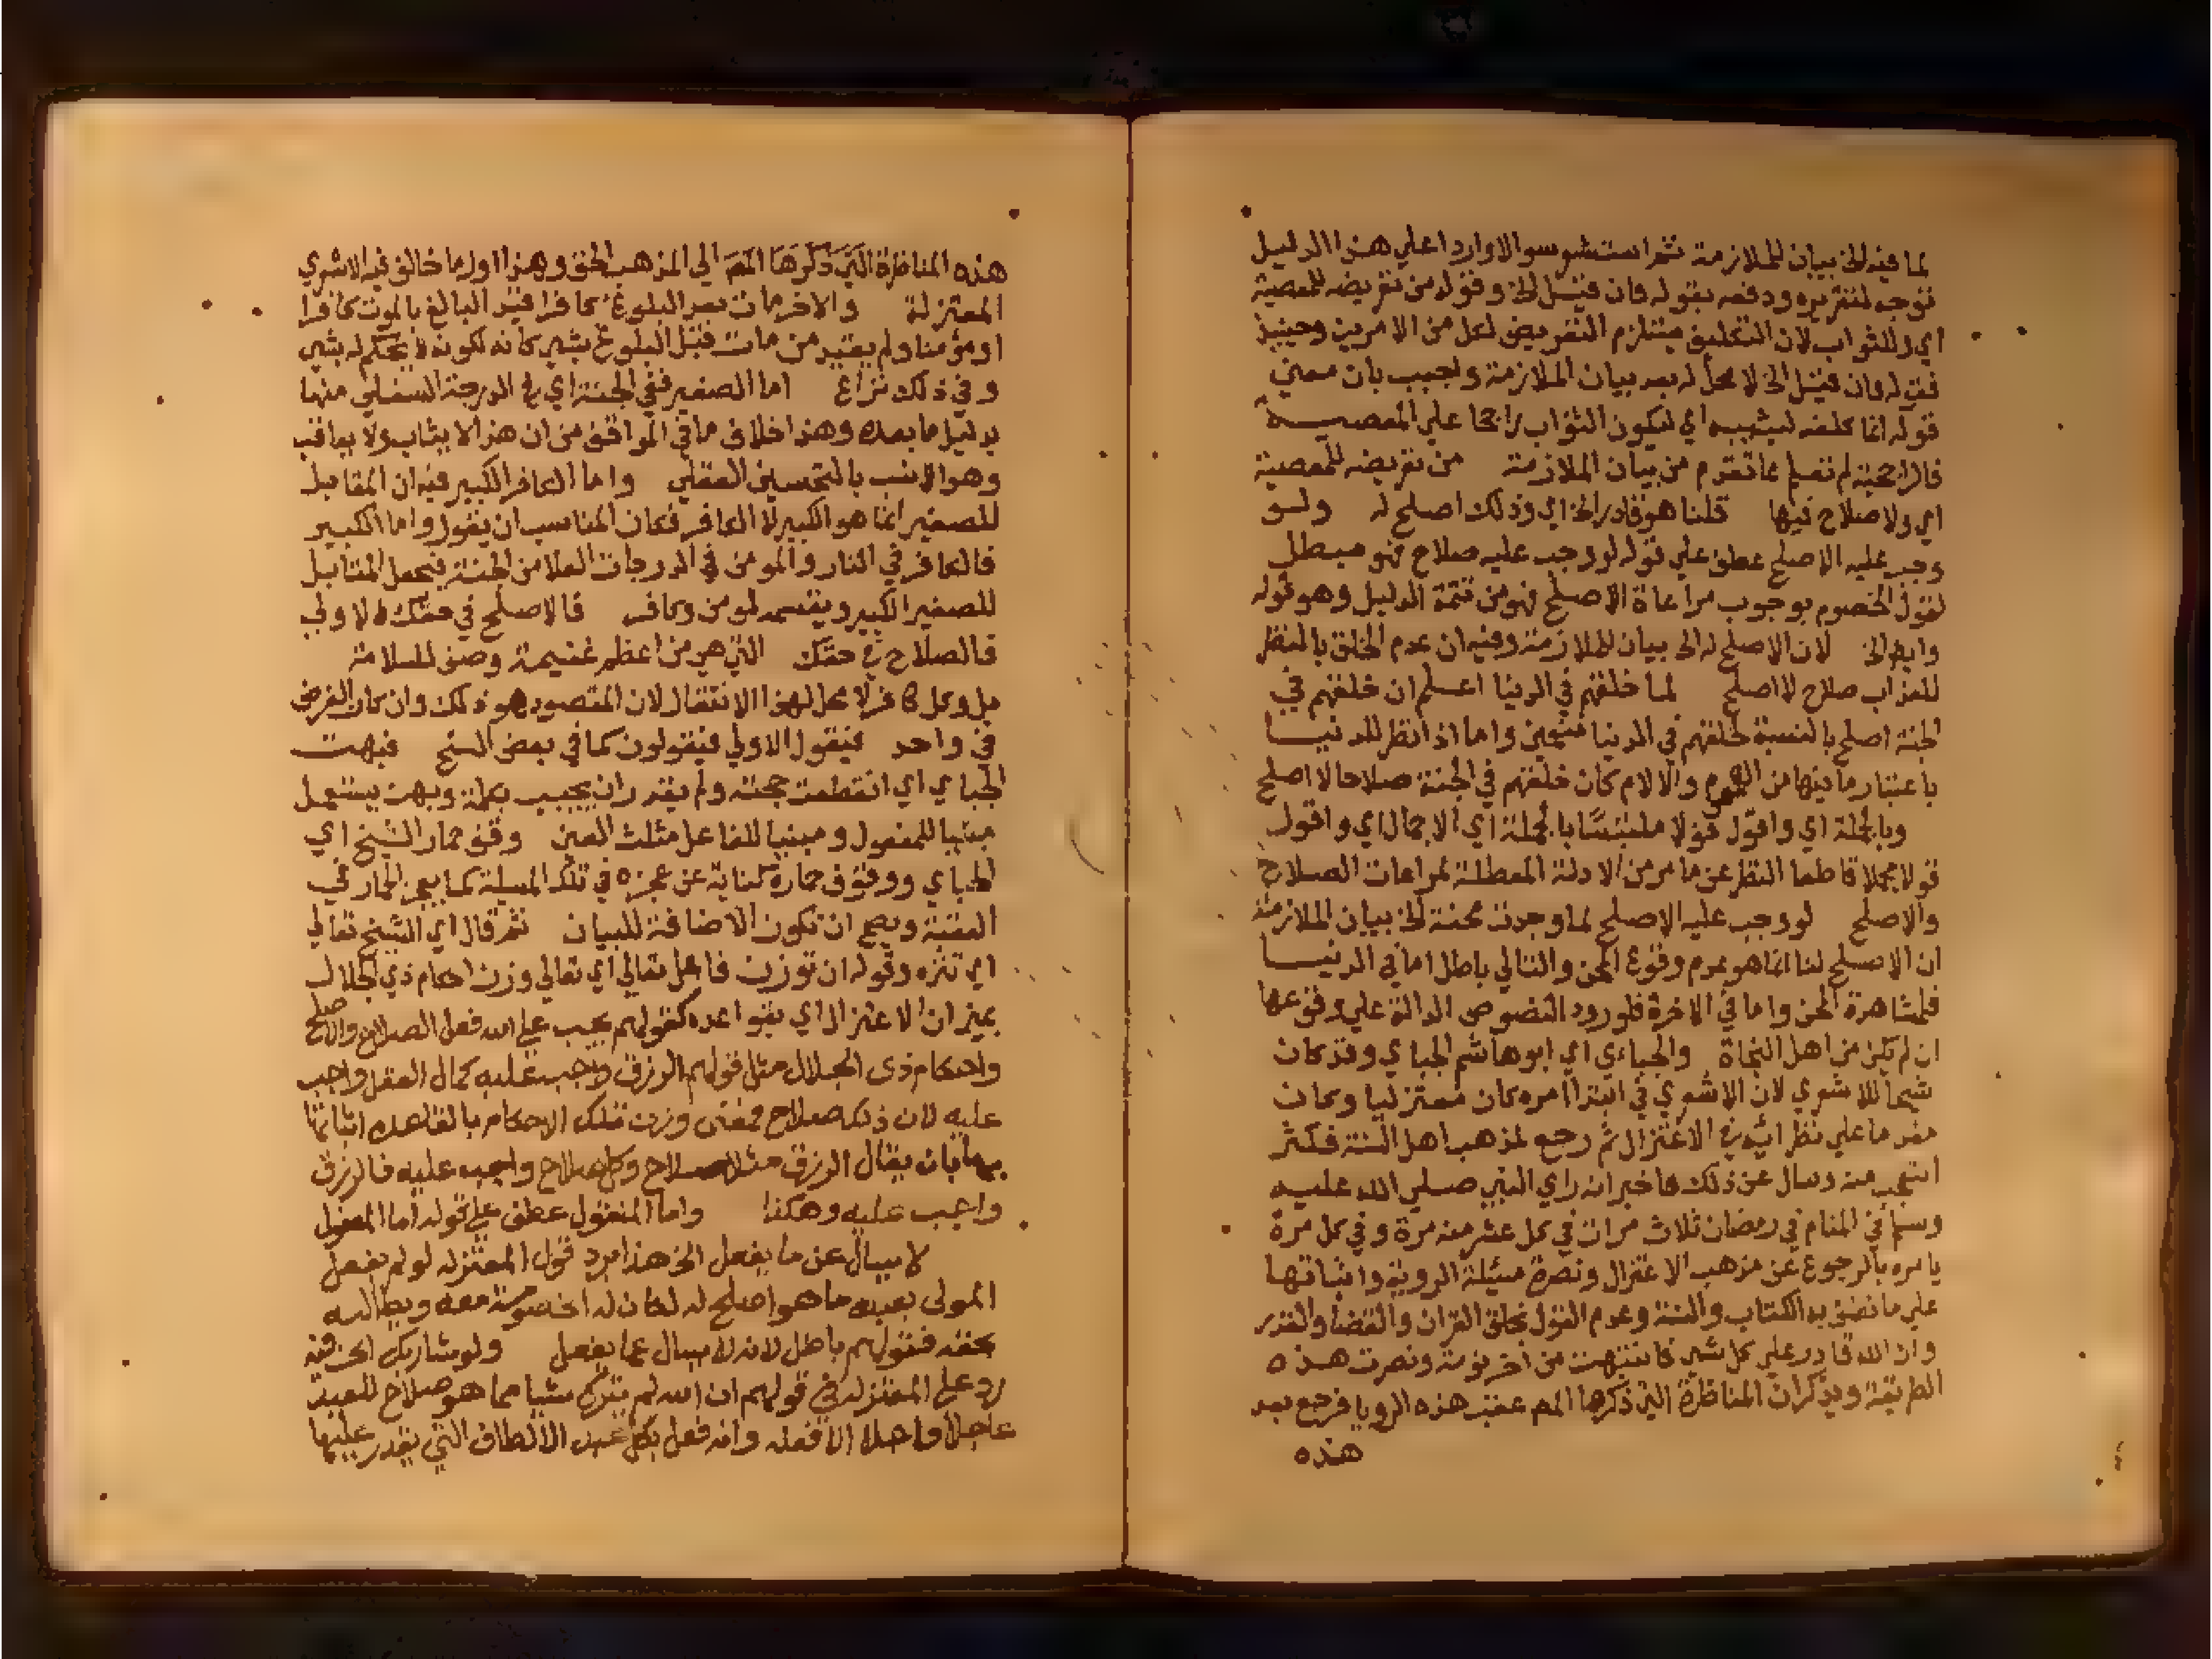 لما فيه الخ بيان للملازمة ثم استشعر سوالا واردا علي هذا الدليل
توجه لتقريره ودفعه بقوله فان قيل الخ وقوله من تعريضه للمعصية
اي وللثواب لان التكليف يستلزم التعريض لكل من الامرين وحينيذ
فقوله فان قيل الخ لا محل له بعد بيان الملازمة واجيب بان معني
قوله انما كلفه ليثيبه اي ليكون الثواب راجحا علي المعصية
فالراجحية لم تعلم مما تقدم من بيان الملازمة من تعريضه للمعصية
اي ولا صلاح فيها قلنا هو قادر الخ اي وذلك اصلح له ولو
وجب عليه الاصلح عطف علي قوله لو وجب عليه صلاح فهو مبطل
لقول الخصوم بوجوب مراعاة الاصلح فهو من تتمة الدليل وهو قوله
وايضا الخ لان الاصلح له الخ بيان للملازمة وفيه ان عدم الخلق بالنظر
للعذاب صلاح لا اصلح لما خلقهم في الدنيا اعلم ان خلقهم في
الجنة اصلح بالنسبة لخلقهم في الدنيا واما اذا نظر للدنيا
باعتبار ما فيها من الهموم والالام كان خلقهم في الجنة صلاحا لا اصلح
وبالجملة اي واقول قولا ملتبسا بالجملة اي الاجمال اي واقول
قولا مجملا قاطعا النظر عن ما مر من الادلة المعطلة لمراعات الصلاح
والاصلح لو وجب عليه الاصلح لما وجدت محنة الخ بيان الملازمة
ان الاصلح لنا انما هو عدم وقوع المحن والتالي باطل اما في الدنيا
فلمشاهدة المحن واما في الاخرة فلورود النصوص الدالة علي وقوعها
ان لم يكن من اهل النجاة والجباءي اي ابو هاشم الجباي وقد كان
شيخا للاشعري لان الاشعري في ابتدا امره كان معتزليا وكان
مقدما علي نظرايه في الاعتزال ثم رجع لمذهب اهل السنة فكثر
التعجب منه وسال عن ذلك فاخبر انه راي النبي صلي الله عليه
وسلم في المنام في رمضان ثلاث مرات في كل عشر منه مرة وفي كل مرة
يامره بالرجوع عن مذهب الاعتزال ونصرة مسئلة الروية واثباتها
علي ما نطق به الكتاب والسنة وعدم القول بخلق القران والقضا والقدر
وان الله قادر علي كل شي فانتبهت من اخر نومة ونصرت هذه
الطريقة ويذكر ان المناظرة التي ذكرها المص عقب هذه الرويا فرجع بعد
هذه
هذه المناظرة التي ذكرها المص الي المذهب الحق وهذا اول ما خالف فيه الاشعري
المعتزلة والاخر مات بعد البلوغ كافرا قيد البالغ بالموت كافرا
او مؤمنا ولم يقيد من مات قبل البلوغ بشي كانه لكونه لا يحكم له بشي
وفي ذلك نزاع اما الصغير ففي الجنة اي في الدرجة السفلي منها
بدليل ما بعده وهذا خلاف ما في المواقف من ان هذا لا يثاب ولا يعاقب
وهو الانسب بالتحسين العقلي واما الكافر الكبير فيه ان المقابل
للصغير انما هو الكبير لا الكافر فكان المناسب ان يقول واما الكبير
فالكافر في النار والمومن في الدرجات العلا من الجنة فيجعل المقابل
للصغير الكبير ويقسمه لمومن وكافر فالاصلح في حقك الاولي
فالصلاح في حقك التي هي من اعظم غنيمة وصف للسلامة
بل وكل كافر لا محل لهذا الانتقال لان المقصود هو ذلك وان كان الفرض
في واحد فيقول الاولي فيقولون كما في بعض النسخ فبهت
الجباي اي انقطعت حجته ولم يقدر ان يجيب بكلمة وبهت يستعمل
مبنيا للمفعول ومبنيا للفاعل مثلث العين وقف حمار الشيخ اي
الجباي ووقوف حماره كناية عن عجزه في تلك المسيلة كما يعجز الحمار في
العقبة ويصح ان تكون الاضافة للبيان ثم قال اي الشيخ تعالي
اي تنزه وقوله ان توزن فاعل تعالي اي تعالي وزن احكام ذي الجلال
بميزان الاعتزال اي بقواعده كقولهم يجب علي الله فعل الصلاح والاصلح
واحكام ذي الجلال مثل قولهم الرزق واجب عليه كمال العقل واجب
عليه لان ذلك صلاح فمعني وزن تلك الاحكام بالقاعده اثباتها
بها بان يقال الرزق مثلا صلاح وكل صلاح واجب عليه فالرزق
واجب عليه وهكذا واما المنقول عطف علي قوله اما المعقول
لا يسال عن ما يفعل الخ هذا يرد قول المعتزله لو لم يفعل
المولي بعبده ما هو اصلح له لكان له الخصومة معه ويطالبه
بحقه فقولهم باطل لانه لا يسال عما يفعل ولو شاربك الخ فيه
رد علي المعتزله في قولهم ان الله لم يترك شيا مما هو صلاح للعبد
عاجلا واجلا الا فعله وانه فعل بكل عبد الالطاف التي يقدر عليها